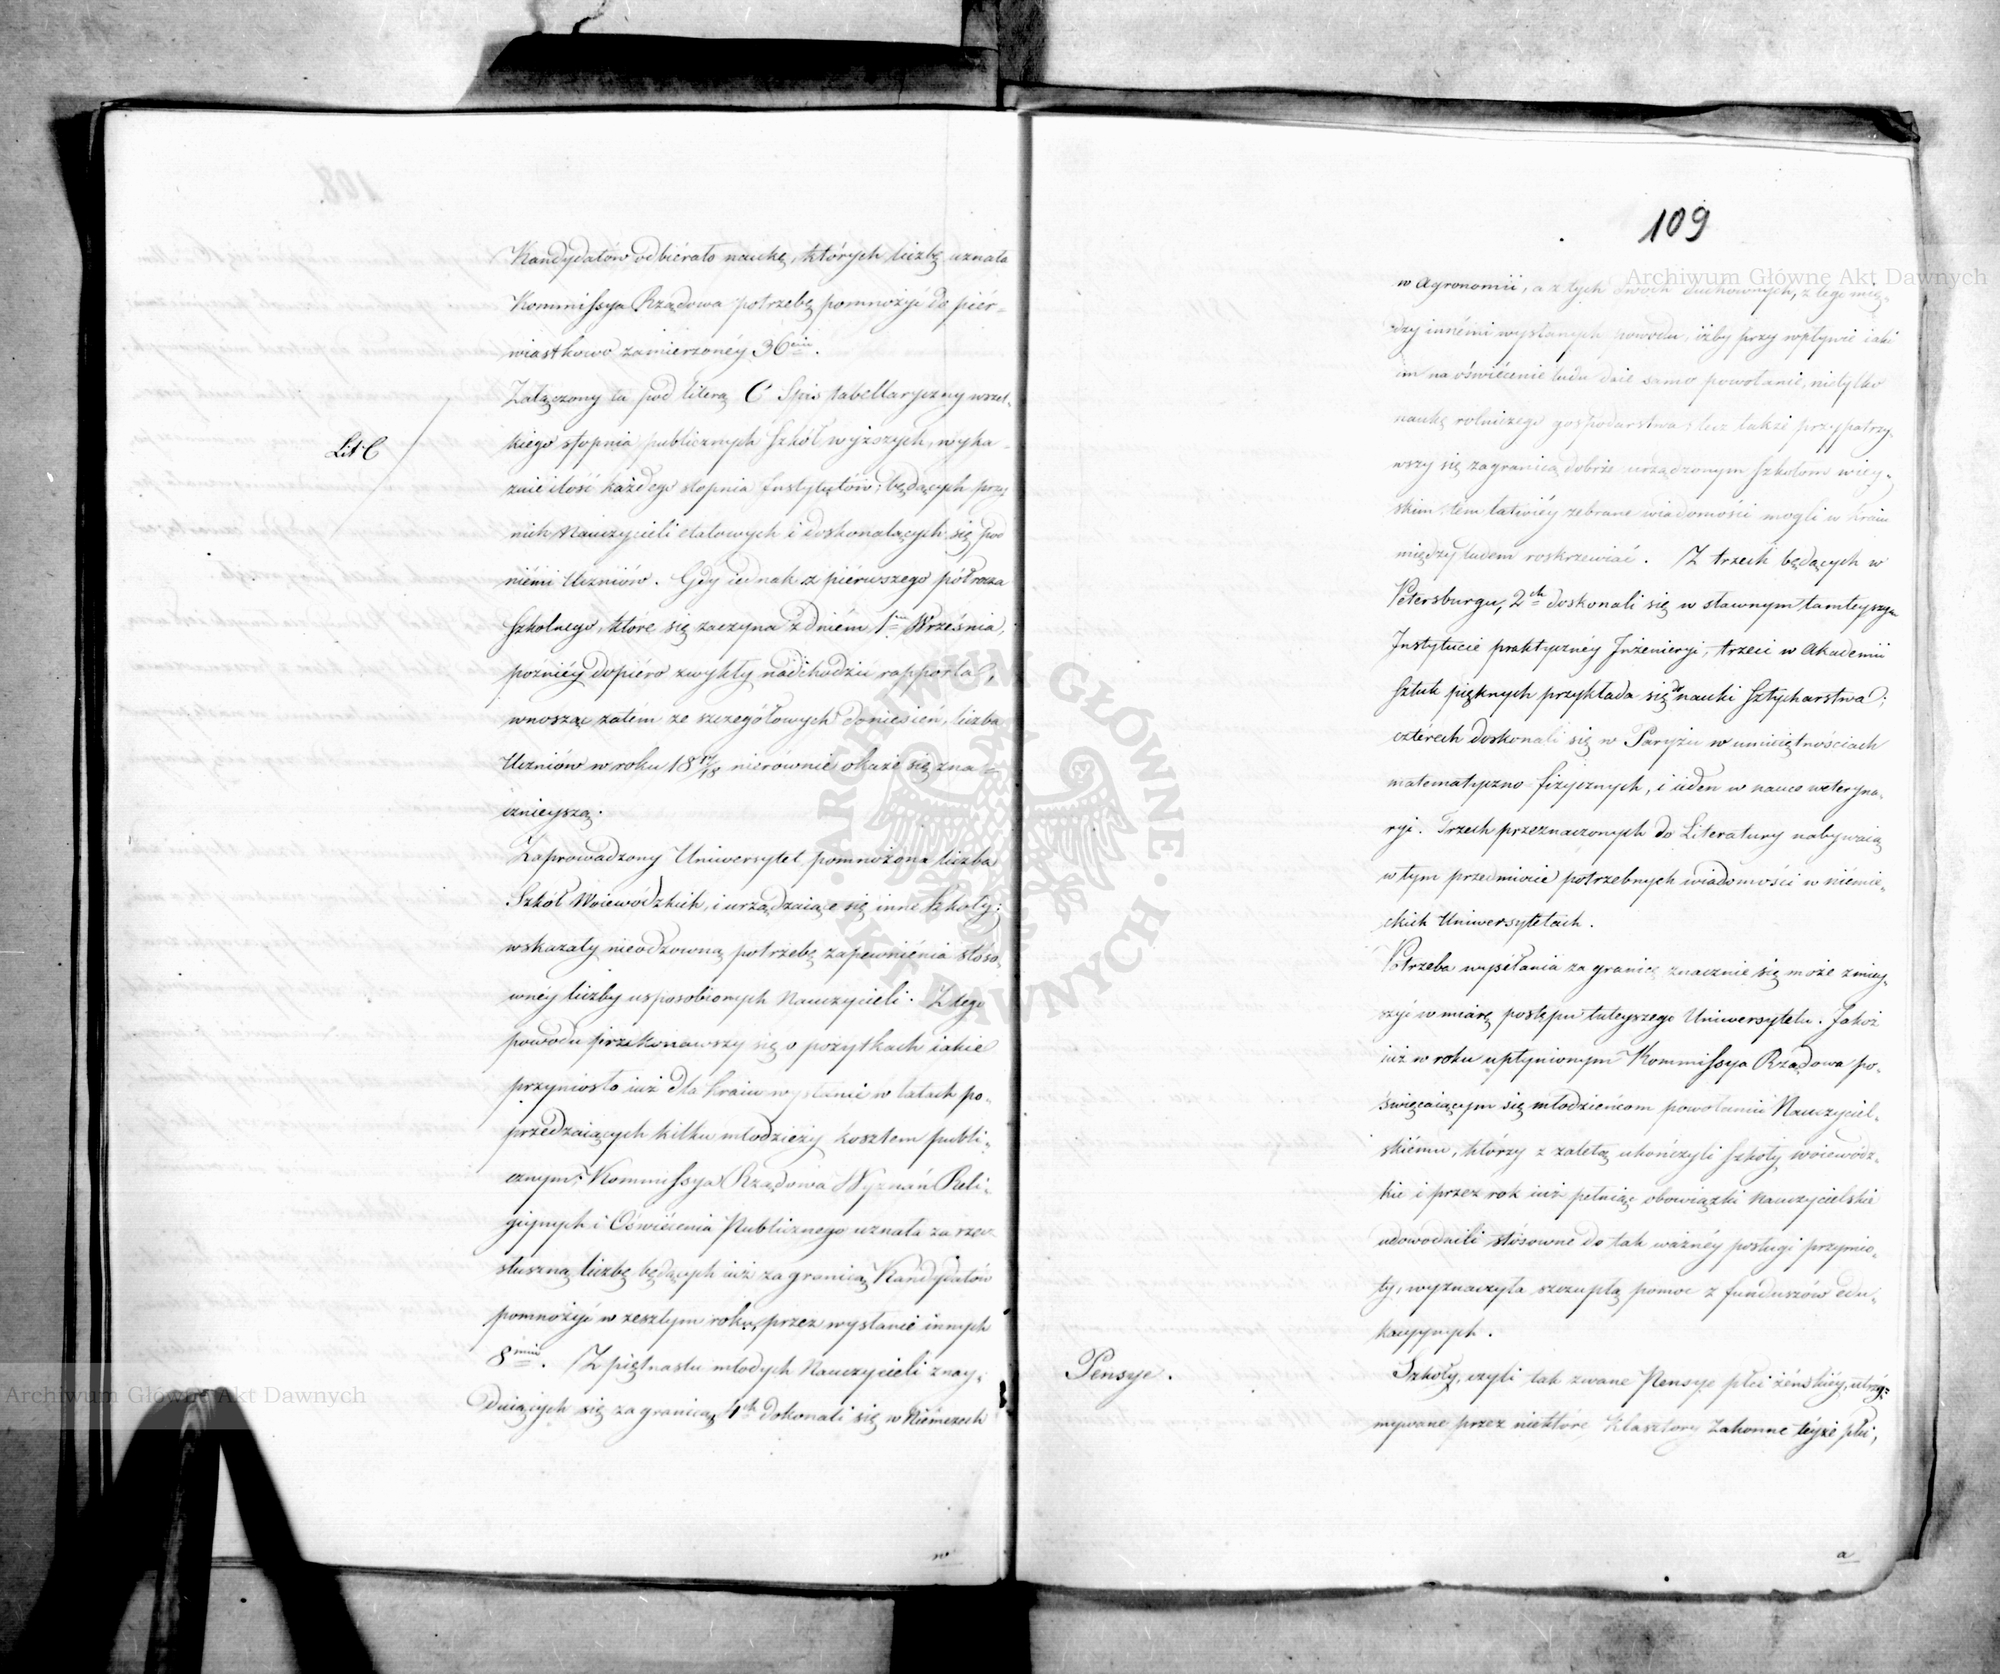 Kandydatów odbiérało naukę, których liczbę uznała
Kommissya Rządowa potrzebę pomnożyć do piér-
wiastkowo zamierzonéy 36ciu.
Załączony tu pod literą C Spis tabellaryczny wszel-
Lit C
kiego stopnia publicznych Szkół wyższych, wyka-
znie ilość każdego stopnia Instytutów; będących przy
nich Nauczycieli etatowych i doskonalących się pod
niémi Uczniów. Gdy iednak z piérwszego półrocza
Szkolnego, które się zaczyna z dniém 1 Września,
pozniéy dopiéro zwykły nadchodzić rapporta,
wnosząc zatém ze szczegółowych doniesień, liczba
Uczniów w roku 1817/18 nierównie okaże się zna-
cznieyszą.
Zaprowadzony Uniwersytet, pomnożona liczba
Szkół Woiewódzkich, i urządzaiące się inne Szkoły;
wskazały nieodzowną potrzebę zapewniénia stóso-
wnéy liczby usposobionych Nauczycieli. Z tego
powodu przekonawszy się o pożytkach iakie
przyniosło iuż dla kraiu wysłanie w latach po-
przedzaiących kilku młodzieży kosztem publi-
cznym; Kommissya Rządowa Wyznań Reli-
giynych i Oświécenia Publicznego uznała za rzecz
słuszną liczbę będących iuż za granicą Kandydatów
pomnożyć w zeszłym roku, przez wysłanie innych
8miu. Z piętnastu młodych Nauczycieli znay-
duiących się za granicą, 4ch dokonali się w Niémczech
w
109
w Agronomii, a z tych dwóch duchownych, z tego mię-
dzy innémi wysłanych powodu, iżby przy wpływie iaki
im na oświécenie ludu daie samo powołanie, nietylko
naukę rolniczego gospodarstwa; lecz także przypatrzy-
wszy się zagranicą dobrze urządzonym Szkołom wiey-
skim, tem łatwiéy zebrane wiadomości mogli w kraiu
między ludem roskrzewiać. Z trzech będących w
Petersburgu, 2ch doskonali się w sławnym tamteyszym
Instytucie praktycznéy Inżenieryi, trzeci w Akademii
Sztuk pięknych przykłada się do nauki Sztycharstwa;
cztérech doskonali się w Paryżu w umieiętnościach
matematyczno-fizycznych, i ieden w nauce weteryna-
ryi. Trzech przeznaczonych do Literatury nabywaią
w tym przedmiocie potrzebnych wiadomości w niémie-
ckich Uniwersytetach.
Potrzeba wysełania za granicę znacznie się może zmniey-
szyć w miarę postępu tuteyszego Uniwersytetu. Jakoż
iuż w roku upłynionym Kommissya Rządowa po-
święcaiącym się młodzieńcom powołaniu Nauczyciel-
skiému, którzy z zaletą ukończyli Szkoły woiewódz-
kie i przez rok iuż pełniąc obowiązki Nauczycielskie
udowodnili stósowne do tak ważnéy posługi przymio-
ty, wyznaczyła szczupłą pomoc z funduszów edu-
kacyynych.
Pensye.
Szkoły, czyli tak zwane Pensye płci żeńskiéy, utrzy-
mywane przez niektóre Klasztory Zakonne téyże płci,
a
Archiwum Główne Akt Dawnych
Archiwum Główne Akt Dawnych
ARCHIWUM GŁÓWNE AKT DAWNYCH